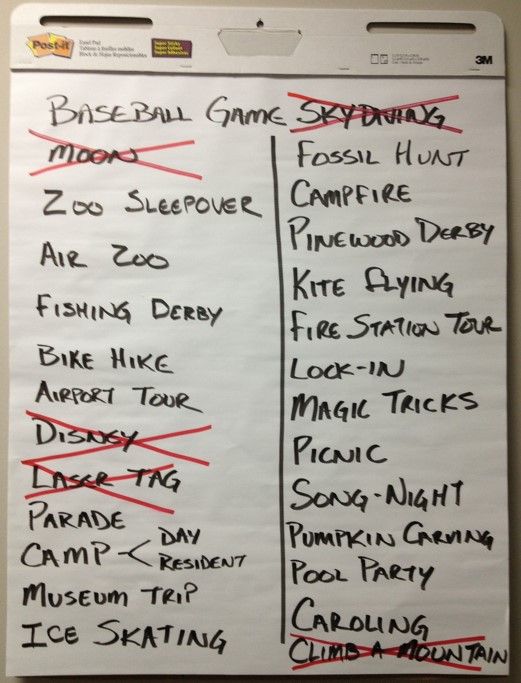 Post-it
Super Sticky
3M
BASEBALL GAME
MOON
ZOO SLEEPOVER
AIR ZOO
FISHING DERBY
BIKE HIKE
AIRPORT TOUR
DISNEY
LASER TAG
PARADE
CAMP < DAY
RESIDENT
MUSEUM TRIP
ICE SKATING
SKYDIVING
FOSSIL HUNT
CAMPFIRE
PINEWOOD DERBY
KITE FLYING
FIRE STATION TOUR
LOCK-IN
MAGIC TRICKS
PICNIC
SONG-NIGHT
PUMPKIN CARVING
POOL PARTY
CAROLING
CLIMB A MOUNTAIN